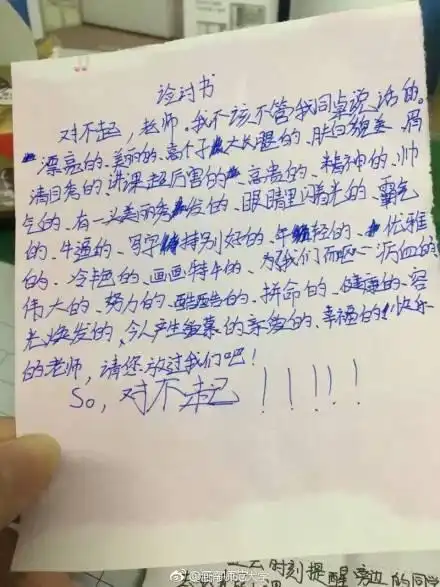 检讨书
对不起，老师。我不该不管我同桌说话的。
漂亮的、美丽的、高个子大长腿的、肤白貌美、眉
清目秀的、讲课超厉害的、高贵的、精神的、帅
气的、有一头美丽秀发的、眼睛里闪光的、霸气
的、牛逼的、写字特别好的、年轻的、优雅
的、冷艳的、画画特牛的、为我们而呕心沥血的
伟大的、努力的、酷酷的、拼命的、健康的、容
光焕发的、令人产生羡慕的亲爱的、幸福的快乐
的老师，请您放过我们吧！
So，对不起！！！！！
时刻提醒旁边的同学
@西南师范大学